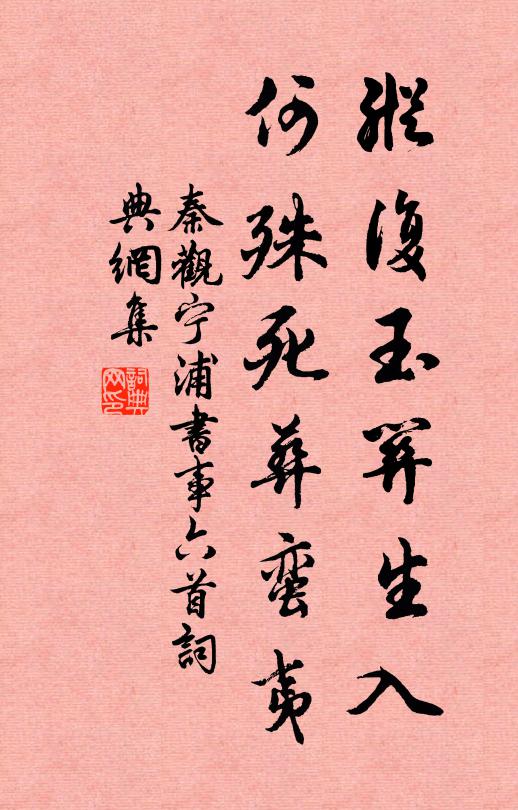 縱復玉關生入
何殊死葬蛮夷
秦觀宁浦書事六首詞
典網集
詞典网印